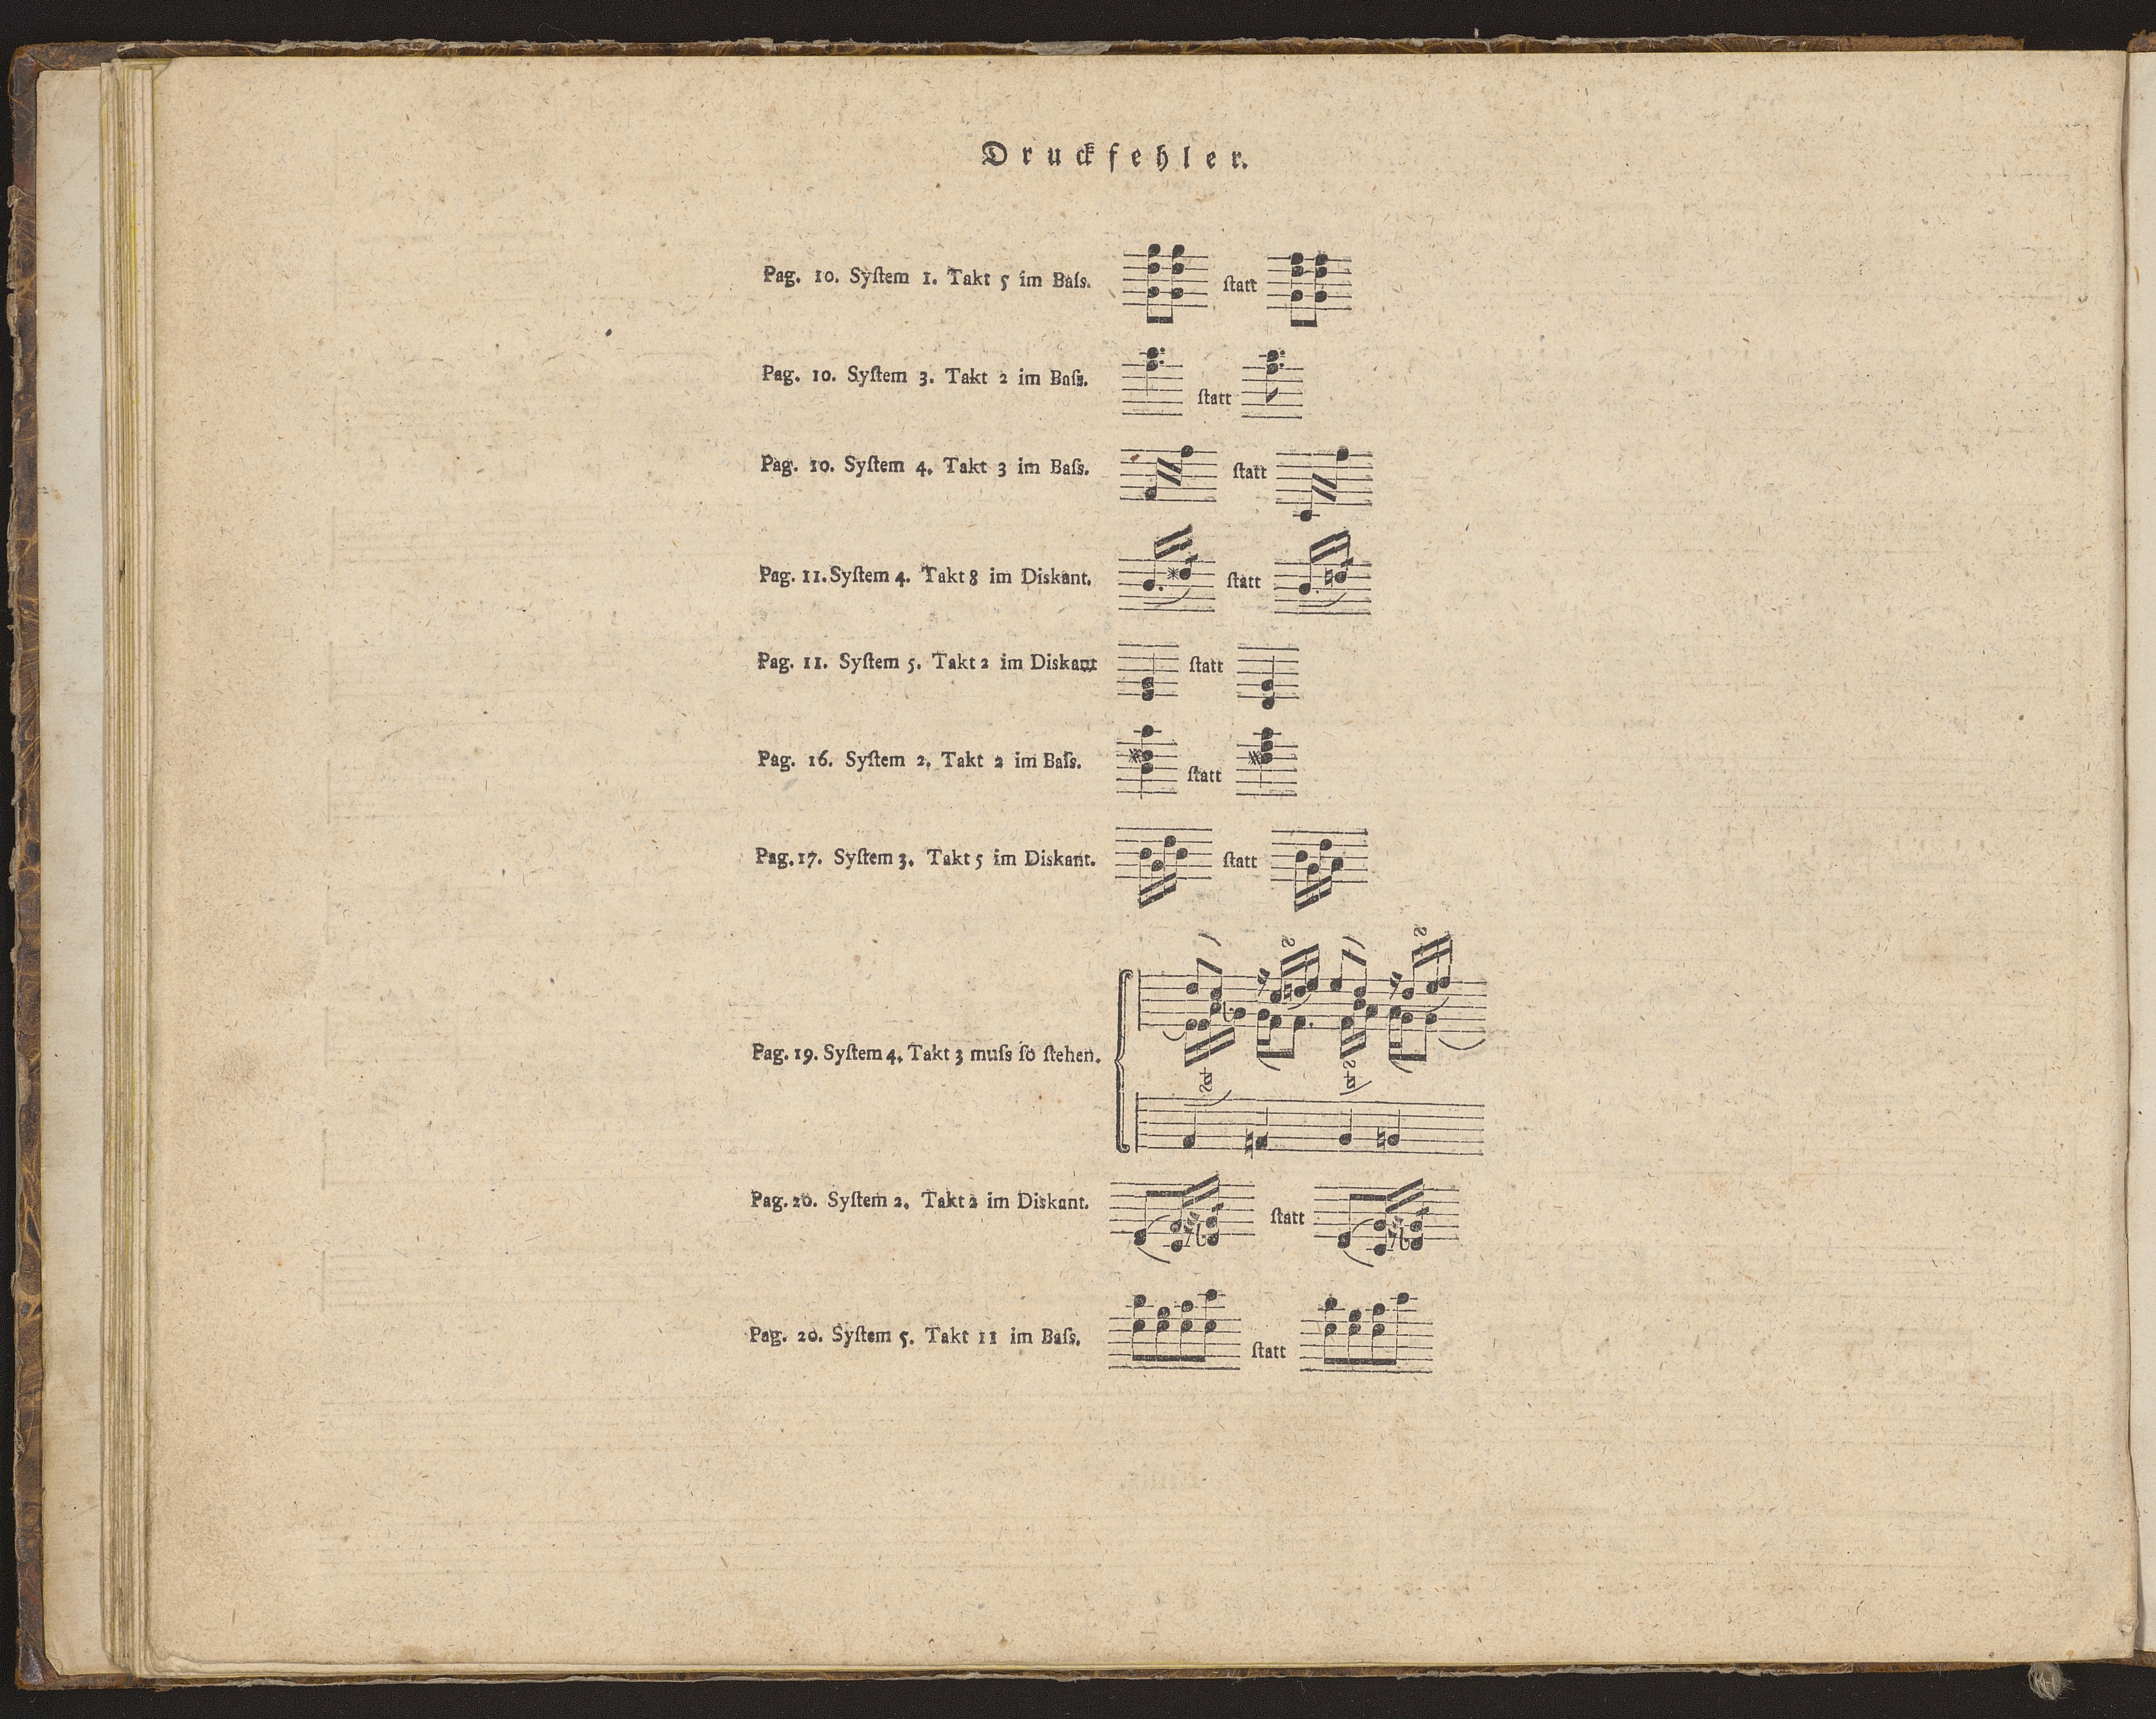 Druckfehler.
Pag. 10. Syſtem 1. Takt 5 im Baſs. ſtatt
Pag. 10. Syſtem 3. Takt 2 im Baſs. ſtatt
Pag. 10. Syſtem 4. Takt 3 im Baſs. ſtatt
Pag. 11. Syſtem 4. Takt 8 im Diskant. ſtatt
Pag. 11. Syſtem 5. Takt 2 im Diskant ſtatt
Pag. 16. Syſtem 2. Takt 2 im Baſs. ſtatt
Pag. 17. Syſtem 3. Takt 5 im Diskant. ſtatt
Pag. 19. Syſtem 4. Takt 3 muſs ſo ſtehen.
Pag. 20. Syſtem 2. Takt 2 im Diskant. ſtatt
Pag. 20. Syſtem 5. Takt 11 im Baſs. ſtatt